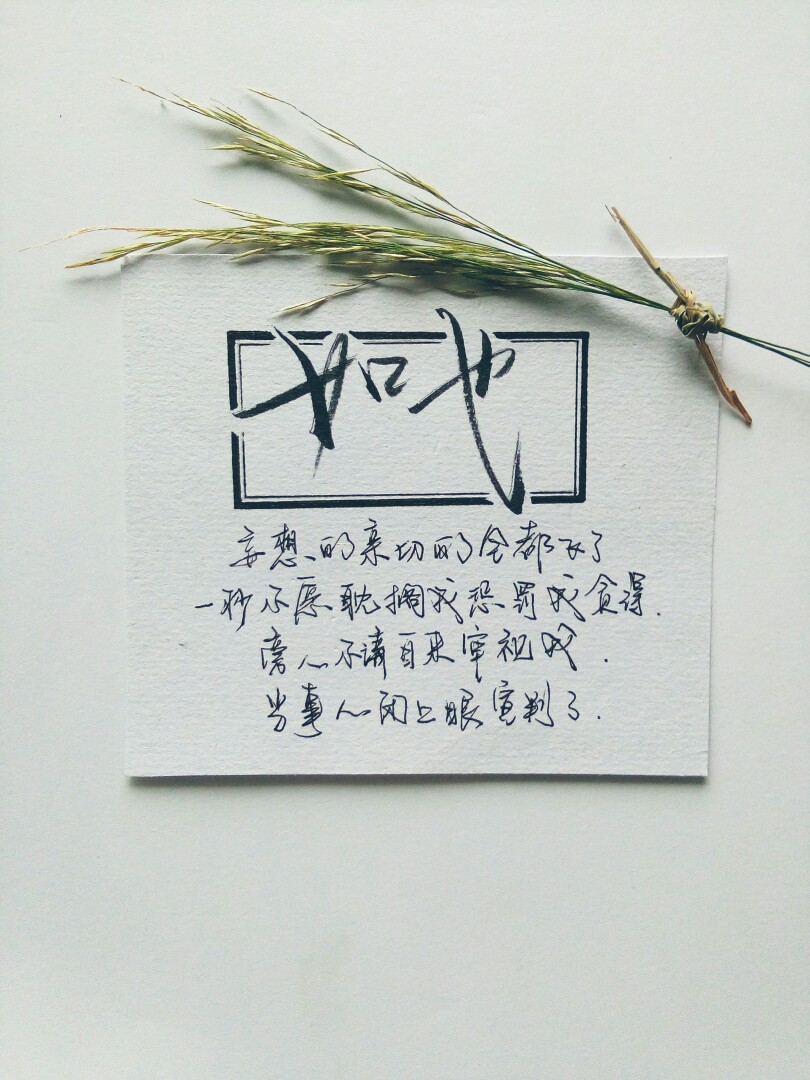 如也
妄想的亲切的全都了
一秒不愿耽搁我惩罚我贪得.
旁人不请自来审视我.
当事人闭上眼宣判了.